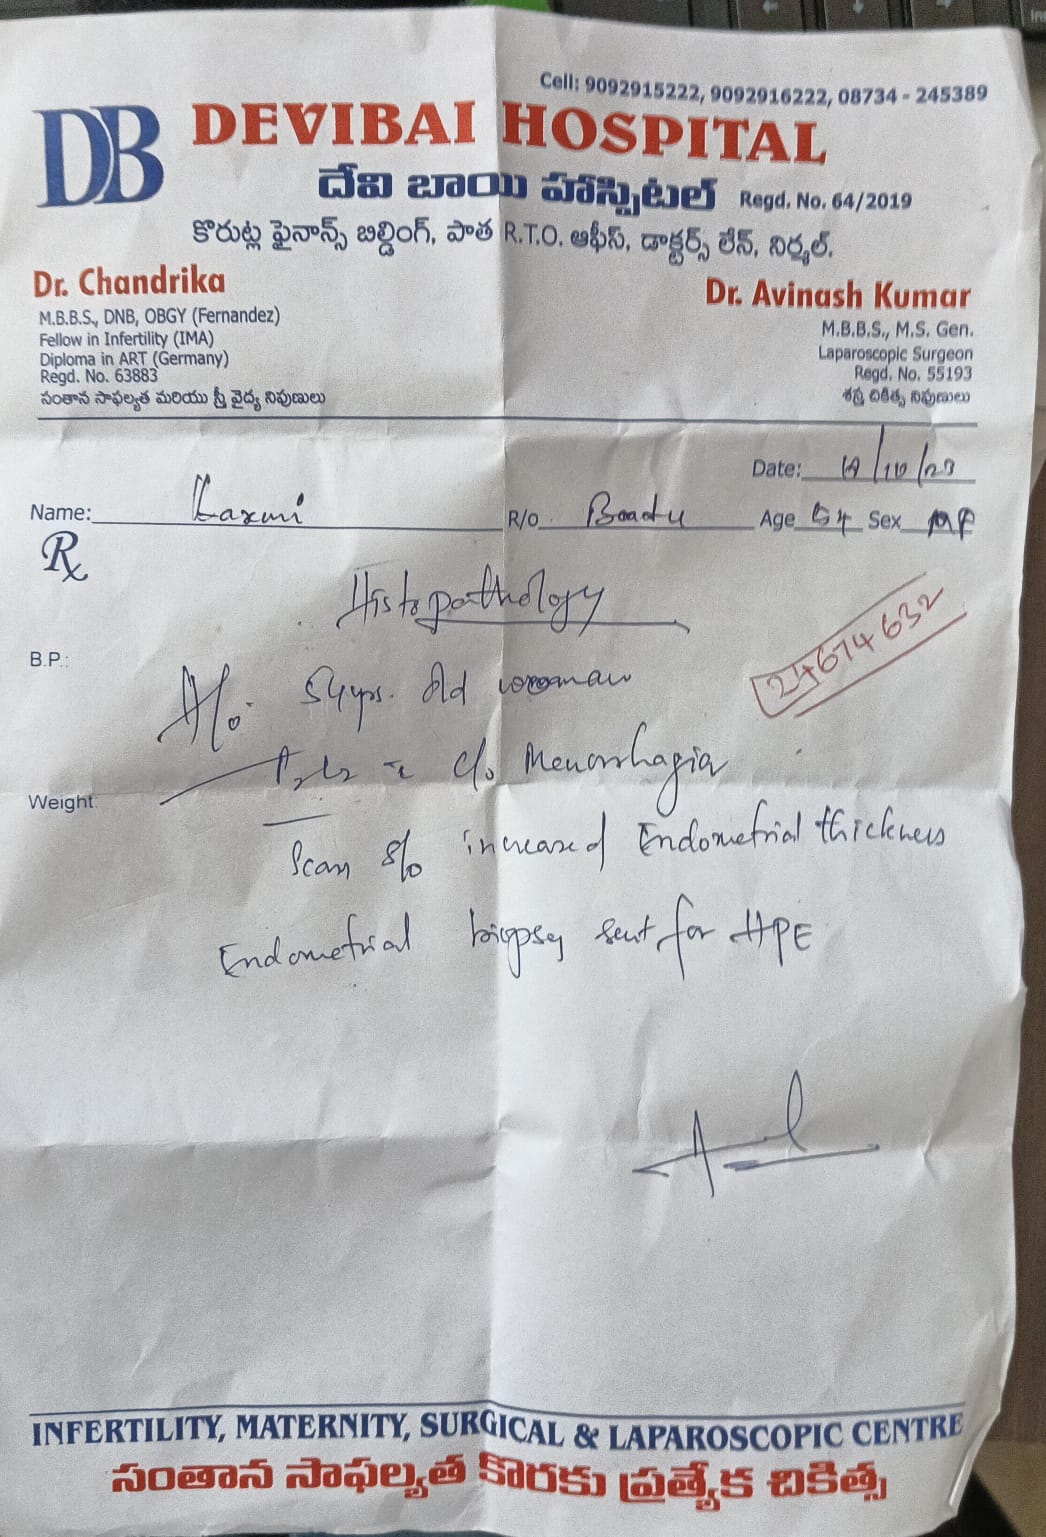 Cell: 9092915222, 9092916222, 08734 - 245389
DB DEVIBAI HOSPITAL
దేవి బాయి హాస్పిటల్ Regd. No. 64/2019
కొరుట్ల ఫైనాన్స్ బిల్డింగ్, పాత R.T.O. ఆఫీస్, డాక్టర్స్ లేన్, నిర్మల్.
Dr. Chandrika
M.B.B.S., DNB, OBGY (Fernandez)
Fellow in Infertility (IMA)
Diploma in ART (Germany)
Regd. No. 63883
సంతాన సాఫల్యత మరియు స్త్రీ వైద్య నిపుణులు
Dr. Avinash Kumar
M.B.B.S., M.S. Gen.
Laparoscopic Surgeon
Regd. No. 55193
శస్త్ర చికిత్స నిపుణులు
Date: /10/23
Name: Laxmi R/o Age 54 Sex F
Rx
Histopathology
24674632
B.P.:
54yrs. Old woman
c/o Menorrhagia
Weight:
Scan s/o increased Endometrial thickness
Endometrial biopsy sent for HPE
INFERTILITY, MATERNITY, SURGICAL & LAPAROSCOPIC CENTRE
సంతాన సాఫల్యత కొరకు ప్రత్యేక చికిత్స